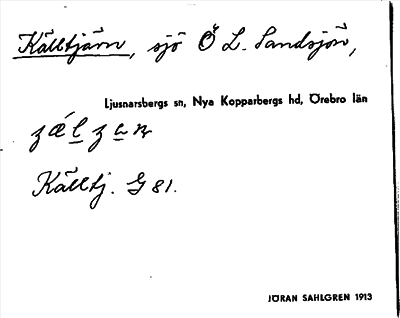 Källtjärn, sjö Ö L. Sandsjön,
Ljusnarsbergs sn, Nya Kopparbergs hd, Örebro län
Källtj. G 81.
JÖRAN SAHLGREN 1913